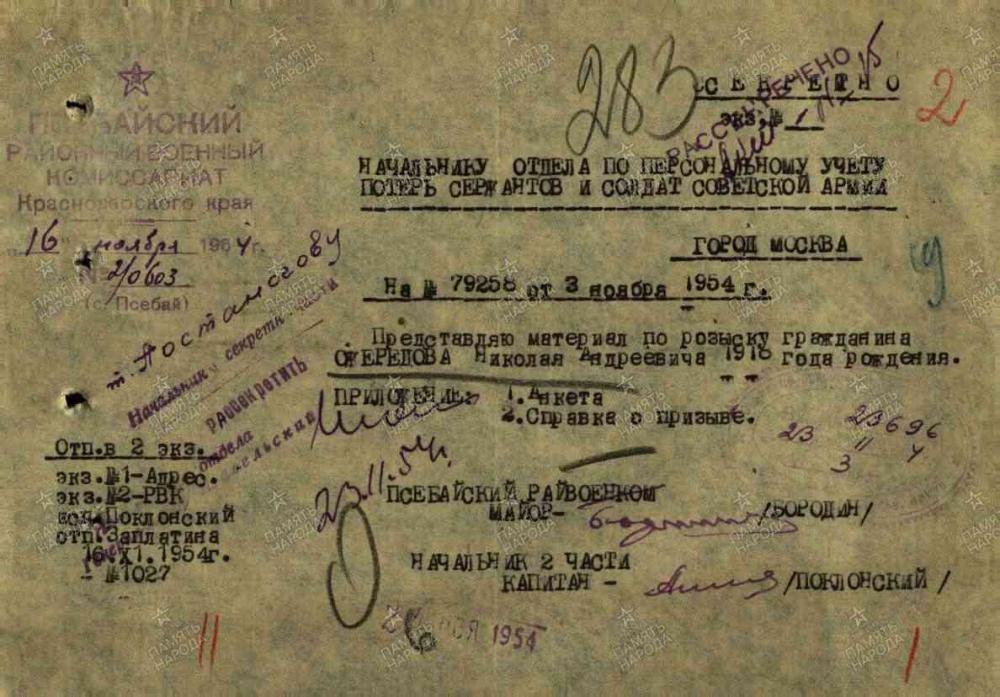 283
СЕКРЕТНО
экз.№ 1
РАССЕКРЕЧЕНО
2
ПСЕБАЙСКИЙ
РАЙОННЫЙ ВОЕННЫЙ
КОМИССАРИАТ
Краснодарского края
"16" ноября 1954 г.
N 2/0603
(с. Псебай)
НАЧАЛЬНИКУ ОТДЕЛА ПО ПЕРСОНАЛЬНОМУ УЧЕТУ
ПОТЕРЬ СЕРЖАНТОВ И СОЛДАТ СОВЕТСКОЙ АРМИИ
ГОРОД МОСКВА
На № 79258 от 3 ноября 1954 г.
Представляю материал по розыску гражданина
ОЖЕРЕДОВА Николая Андреевича 1918 года рождения.
ПРИЛОЖЕНИЕ: 1.Анкета
2.Справка о призыве.
т.
Начальник секретн. части
рассекретить
отдела
23 23696
11 4
3
23.11.54г.
Отп.в 2 экз.
экз.№1-Адрес.
экз.№2-РВК
исп.Поклонский
отп.Заплатина
16.XI.1954г.
- №1027
ПСЕБАЙСКИЙ РАЙВОЕНКОМ
МАЙОР- /БОРОДИН/
НАЧАЛЬНИК 2 ЧАСТИ
КАПИТАН - /ПОКЛОНСКИЙ /
1954
11
1
ПАМЯТЬ НАРОДА